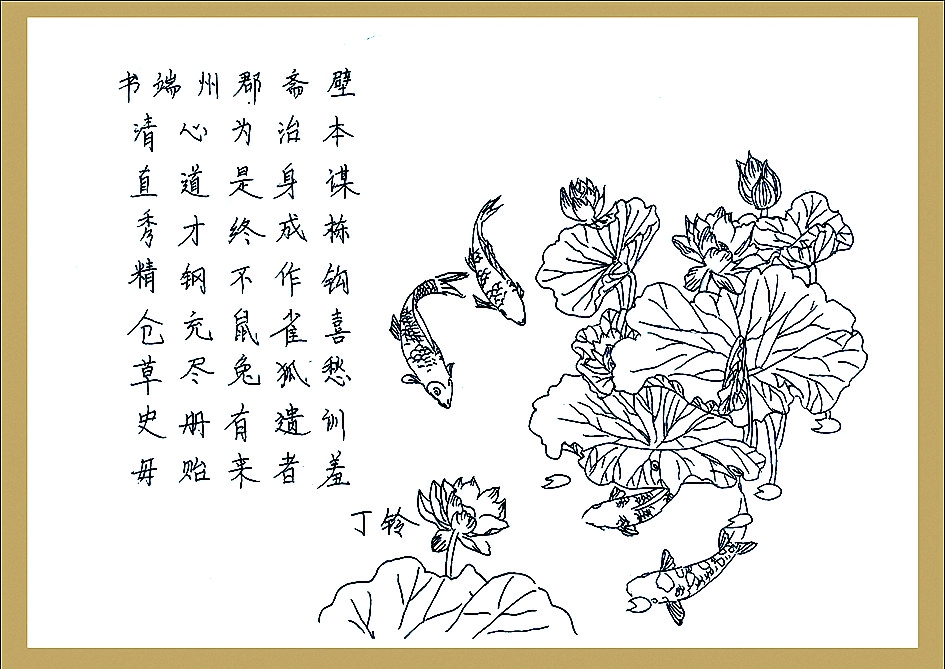 书端州郡斋壁
清心为治本
直道是身谋
秀才终成栋
精钢不作钩
仓充鼠雀喜
草尽兔狐愁
史册有遗训
毋贻来者羞
丁铃